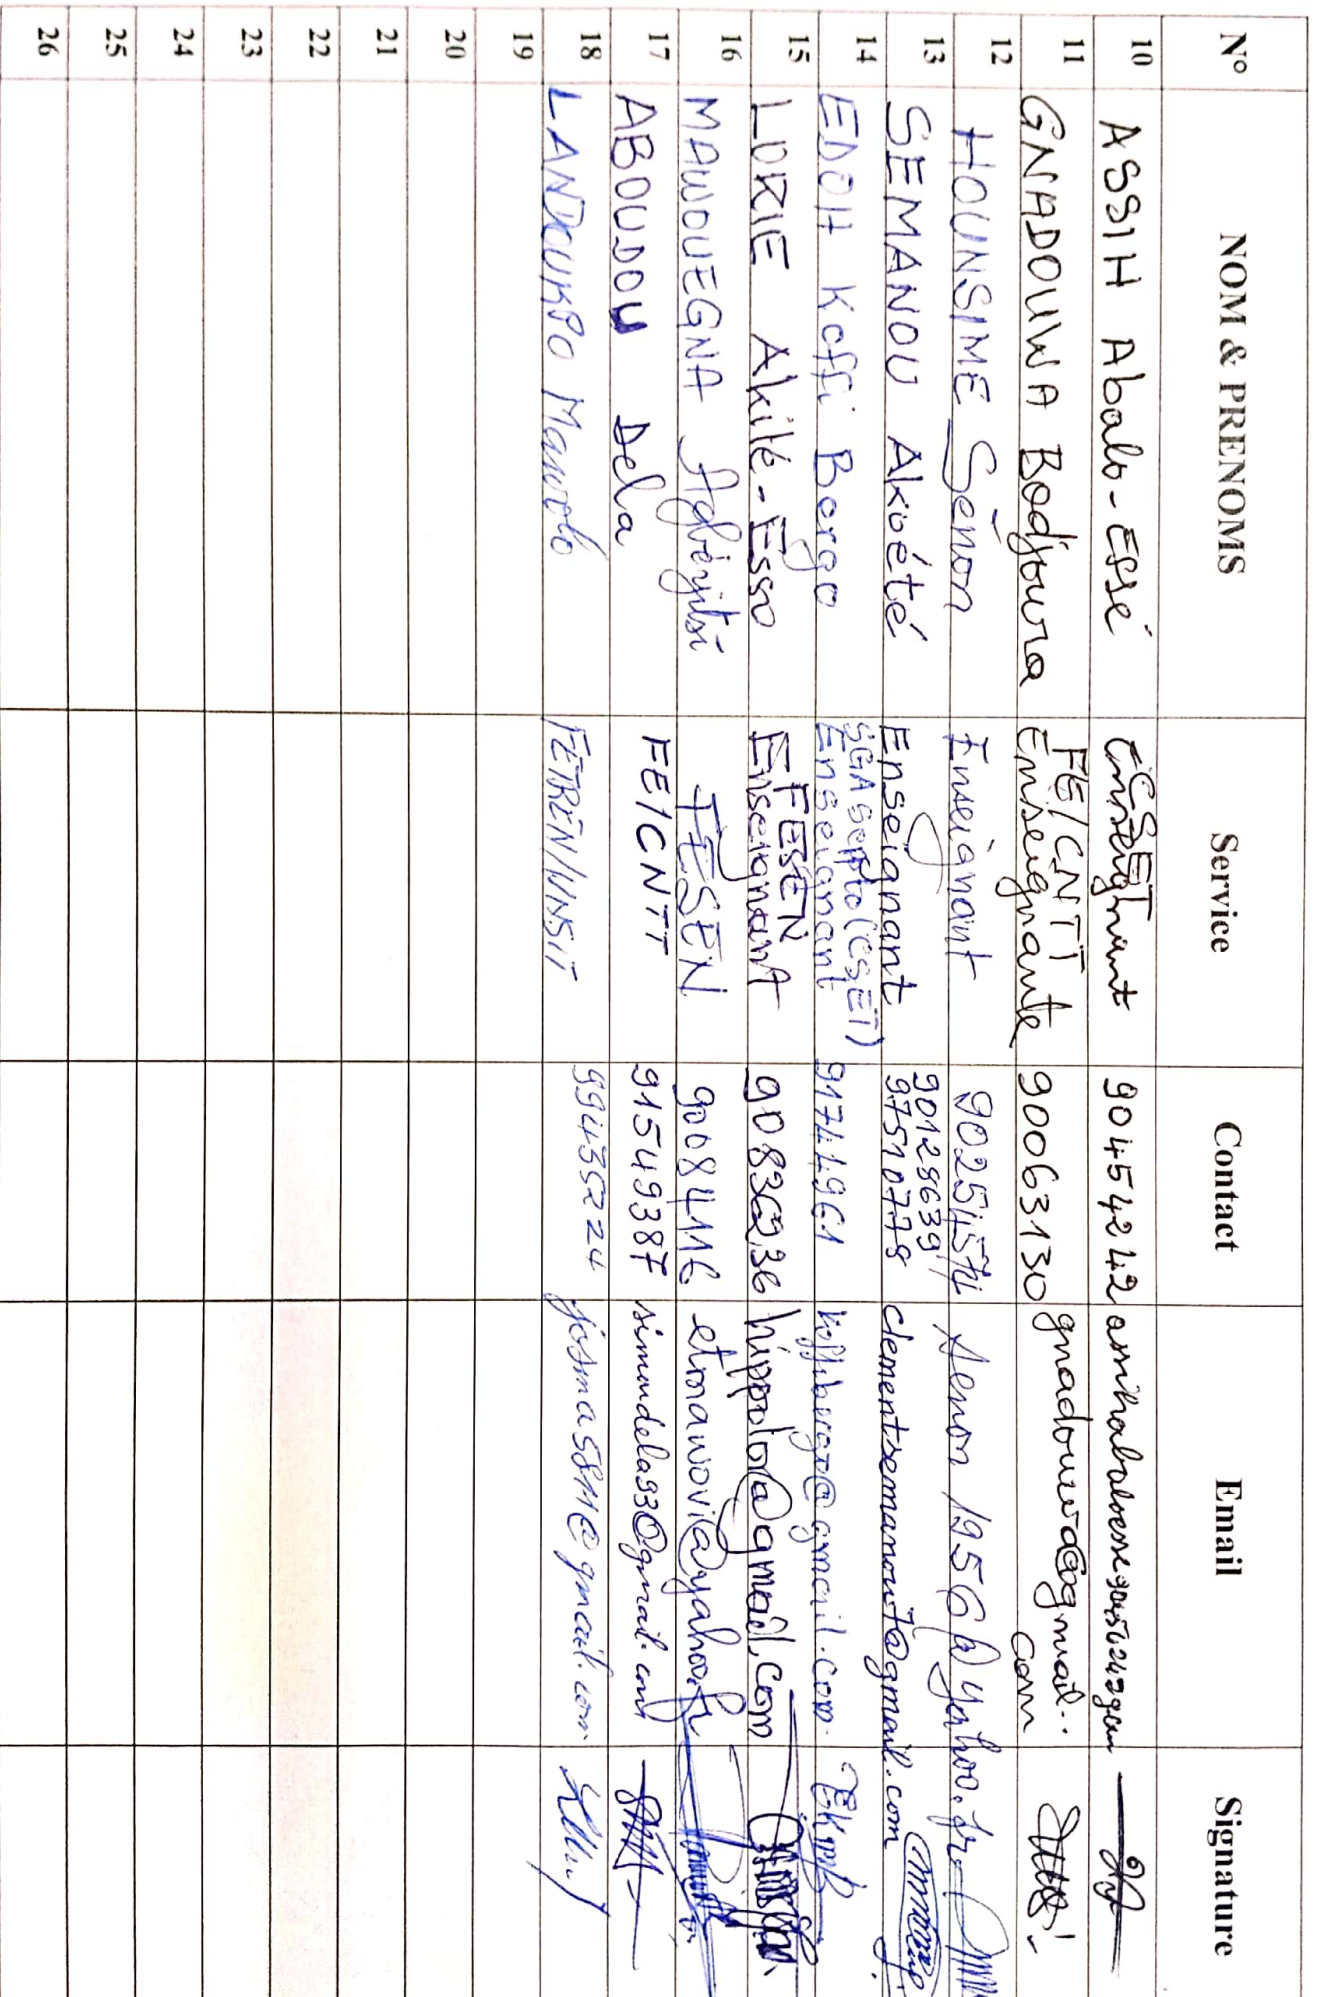 N° NOM & PRENOMS Service Contact Email Signature
10 ASSIH Abalo-Essé CSET Enseignant 90454242
11 GNADOUWA Bodjoura FE/CNTT Enseignante 90063130 gnadouwa@gmail.com
12 HOUNSIME Sènon Enseignant Senon 1956@yahoo.fr
13 SEMANOU Akoété Enseignant 90128639/ 97510778 clementsemanou7@gmail.com
14 EDOH Koffi Borgo SGA (CSET) Enseignant koffiborgo@gmail.com
15 LORIE Akilé-Esso FESEN Enseignant 90836236 hippolor@gmail.com
16 MAWOUEGNA FESEN 90084116 etmawovi@yahoo.fr
17 ABOUDOU Dela FE/CNTT 91549387 simondela93@gmail.com
18 LANDOUKPO Mawolo 99435224 josma5811@gmail.com
19
20
21
22
23
24
25
26